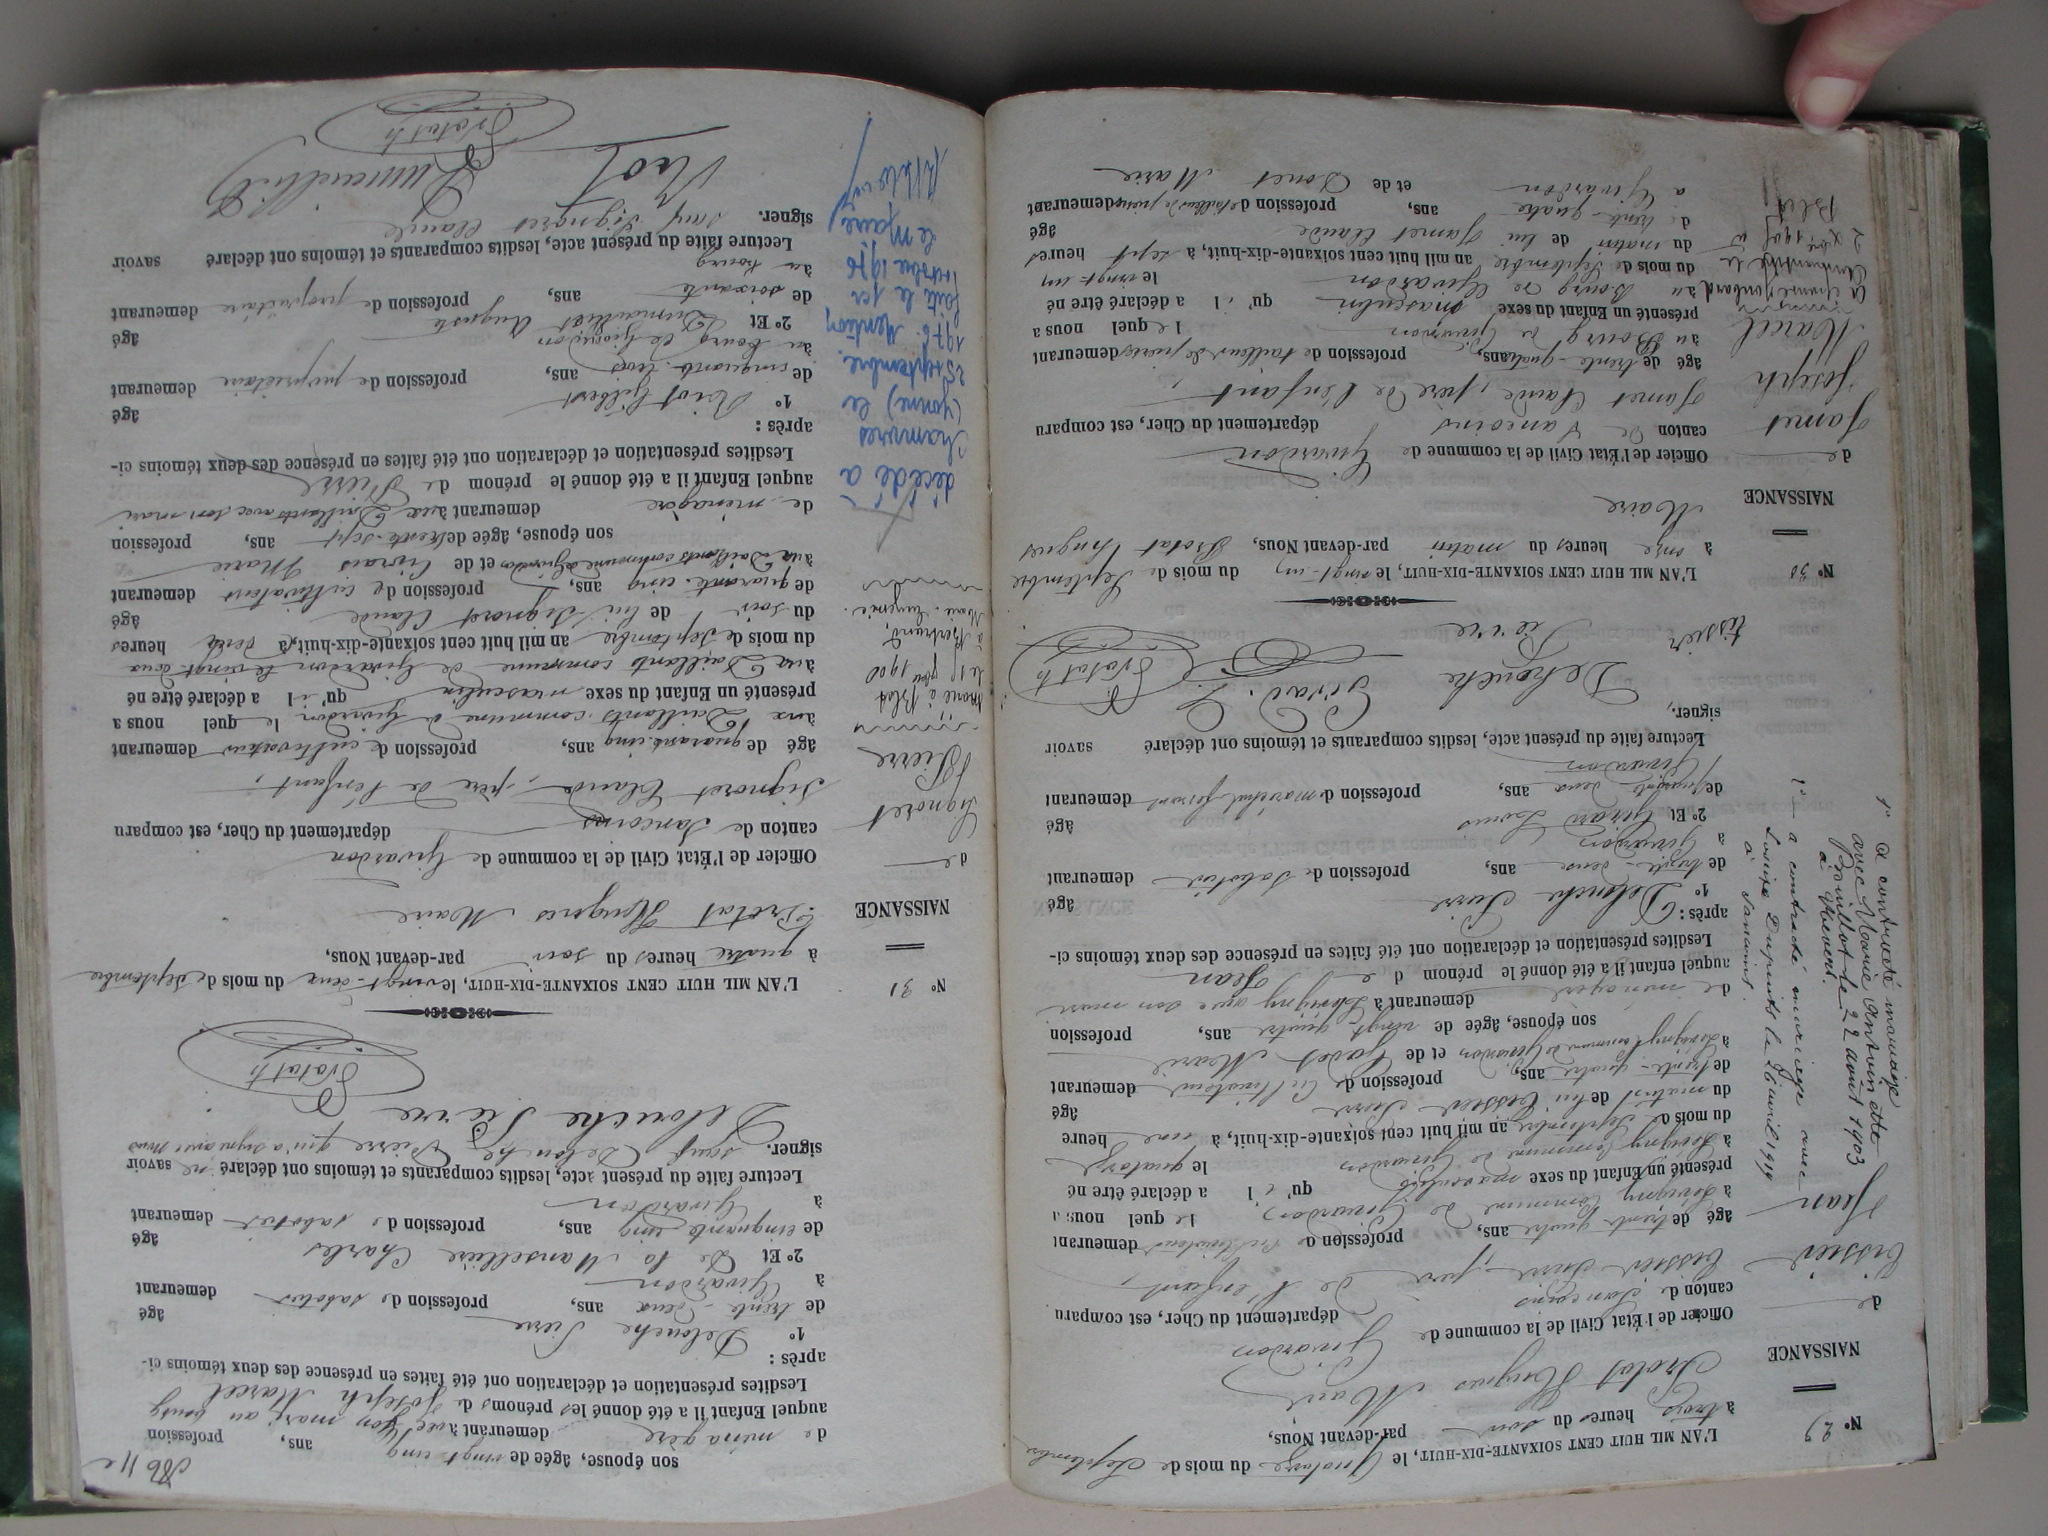 N° 29
NAISSANCE
de
Tissier
Jean
1° a contracté mariage
avec Marie Antoinette
le 22 août 1903
à
1° a contracté mariage avec
Dupuits le 26 avril 1919
à Sancoins.
L'AN MIL HUIT CENT SOIXANTE-DIX-HUIT, le Quatorze du mois de Septembre
à trois heures du soir par-devant Nous,
Protat Hugues Maire
Officier de l'État Civil de la commune de Givardon
canton de Sancoins département du Cher, est comparu
Tissier Pierre, père de l'enfant,
âgé de trente quatre ans, profession de Cultivateur demeurant
à Commune de Givardon, lequel nous a
présenté un Enfant du sexe masculin qu'il a déclaré être né
à commune de Givardon le quatorze
du mois de Septembre an mil huit cent soixante-dix-huit, à une heure
du matin de lui Tissier Pierre âgé
de trente-quatre ans, profession de Cultivateur demeurant
à commune de Givardon et de Marie
son épouse, âgée de vingt-quatre ans, profession
de ménagère demeurant à avec son mari
auquel enfant il a été donné le prénom de Jean
Lesdites présentation et déclaration ont été faites en présence des deux témoins ci-
après :
1° Delouche Pierre âgé
de trente-deux ans, profession de Sabotier demeurant
à Givardon
2° Et Girard Louis âgé
de deux ans, profession de maréchal ferrant demeurant
Givardon
Lecture faite du présent acte, lesdits comparants et témoins ont déclaré savoir
signer.
Delouche Girard L. Protat h
tissier Pierre
N° 30
NAISSANCE
de
Jamet
Joseph
Marcel
L'AN MIL HUIT CENT SOIXANTE-DIX-HUIT, le vingt-un du mois de Septembre
à onze heures du matin par-devant Nous, Protat Hugues
Maire
Officier de l'État Civil de la commune de Givardon
canton de Sancoins département du Cher, est comparu
Jamet Claude, père de l'enfant,
âgé de trente-quatre ans, profession de tailleur de pierres demeurant
au Bourg de Givardon lequel nous a
présenté un Enfant du sexe masculin qu'il a déclaré être né
au Bourg de Givardon le vingt-un
du mois de Septembre an mil huit cent soixante-dix-huit, à sept heures
du matin de lui Jamet Claude âgé
de trente-quatre ans, profession de tailleur de pierres demeurant
à Givardon et de Bonet Marie
son épouse, âgée de vingt cinq ans, profession
de ménagère demeurant avec son mari au bourg
auquel Enfant il a été donné les prénoms de Joseph Marcel
Lesdites présentation et déclaration ont été faites en présence des deux témoins ci-
après :
1° Delouche Pierre âgé
de trente-deux ans, profession de sabotier demeurant
à Givardon
2° Et De la Manselière Charles âgé
de cinquante cinq ans, profession de sabotier demeurant
à Givardon
Lecture faite du présent acte, lesdits comparants et témoins ont déclaré ne savoir
signer. sauf Delouche Pierre qui a signé avec nous
Delouche Pierre
Protat h
N° 31
NAISSANCE
de
Signoret
Pierre
marié à Blet
à Bertrand,
Marie-Eugénie.
décédé à
Chamvres
(Yonne) le
25 septembre
1976. Mention
faite le 1er
octobre 1976
Le Maire,
L'AN MIL HUIT CENT SOIXANTE-DIX-HUIT, le vingt-deux du mois de Septembre
à quatre heures du soir par-devant Nous,
Protat Hugues Maire
Officier de l'État Civil de la commune de Givardon
canton de Sancoins département du Cher, est comparu
Signoret Claude, père de l'enfant,
âgé de quarante cinq ans, profession de cultivateur demeurant
aux Daillants commune de Givardon lequel nous a
présenté un Enfant du sexe masculin qu'il a déclaré être né
aux Daillants commune de Givardon le vingt-deux
du mois de Septembre an mil huit cent soixante-dix-huit, à deux heures
du soir de lui Signoret Claude âgé
de quarante cinq ans, profession de cultivateur demeurant
aux Daillants commune de Givardon et de Marie
son épouse, âgée de trente-sept ans, profession
de ménagère demeurant aux Daillants avec son mari
auquel Enfant il a été donné le prénom de Pierre
Lesdites présentation et déclaration ont été faites en présence des deux témoins ci-
après :
1° Gilbert âgé
de cinquante trois ans, profession de propriétaire demeurant
au bourg de Givardon
2° Et Auguste âgé
de soixante ans, profession de propriétaire demeurant
au bourg
Lecture faite du présent acte, lesdits comparants et témoins ont déclaré savoir
signer. sauf Signoret Claude
Protat h